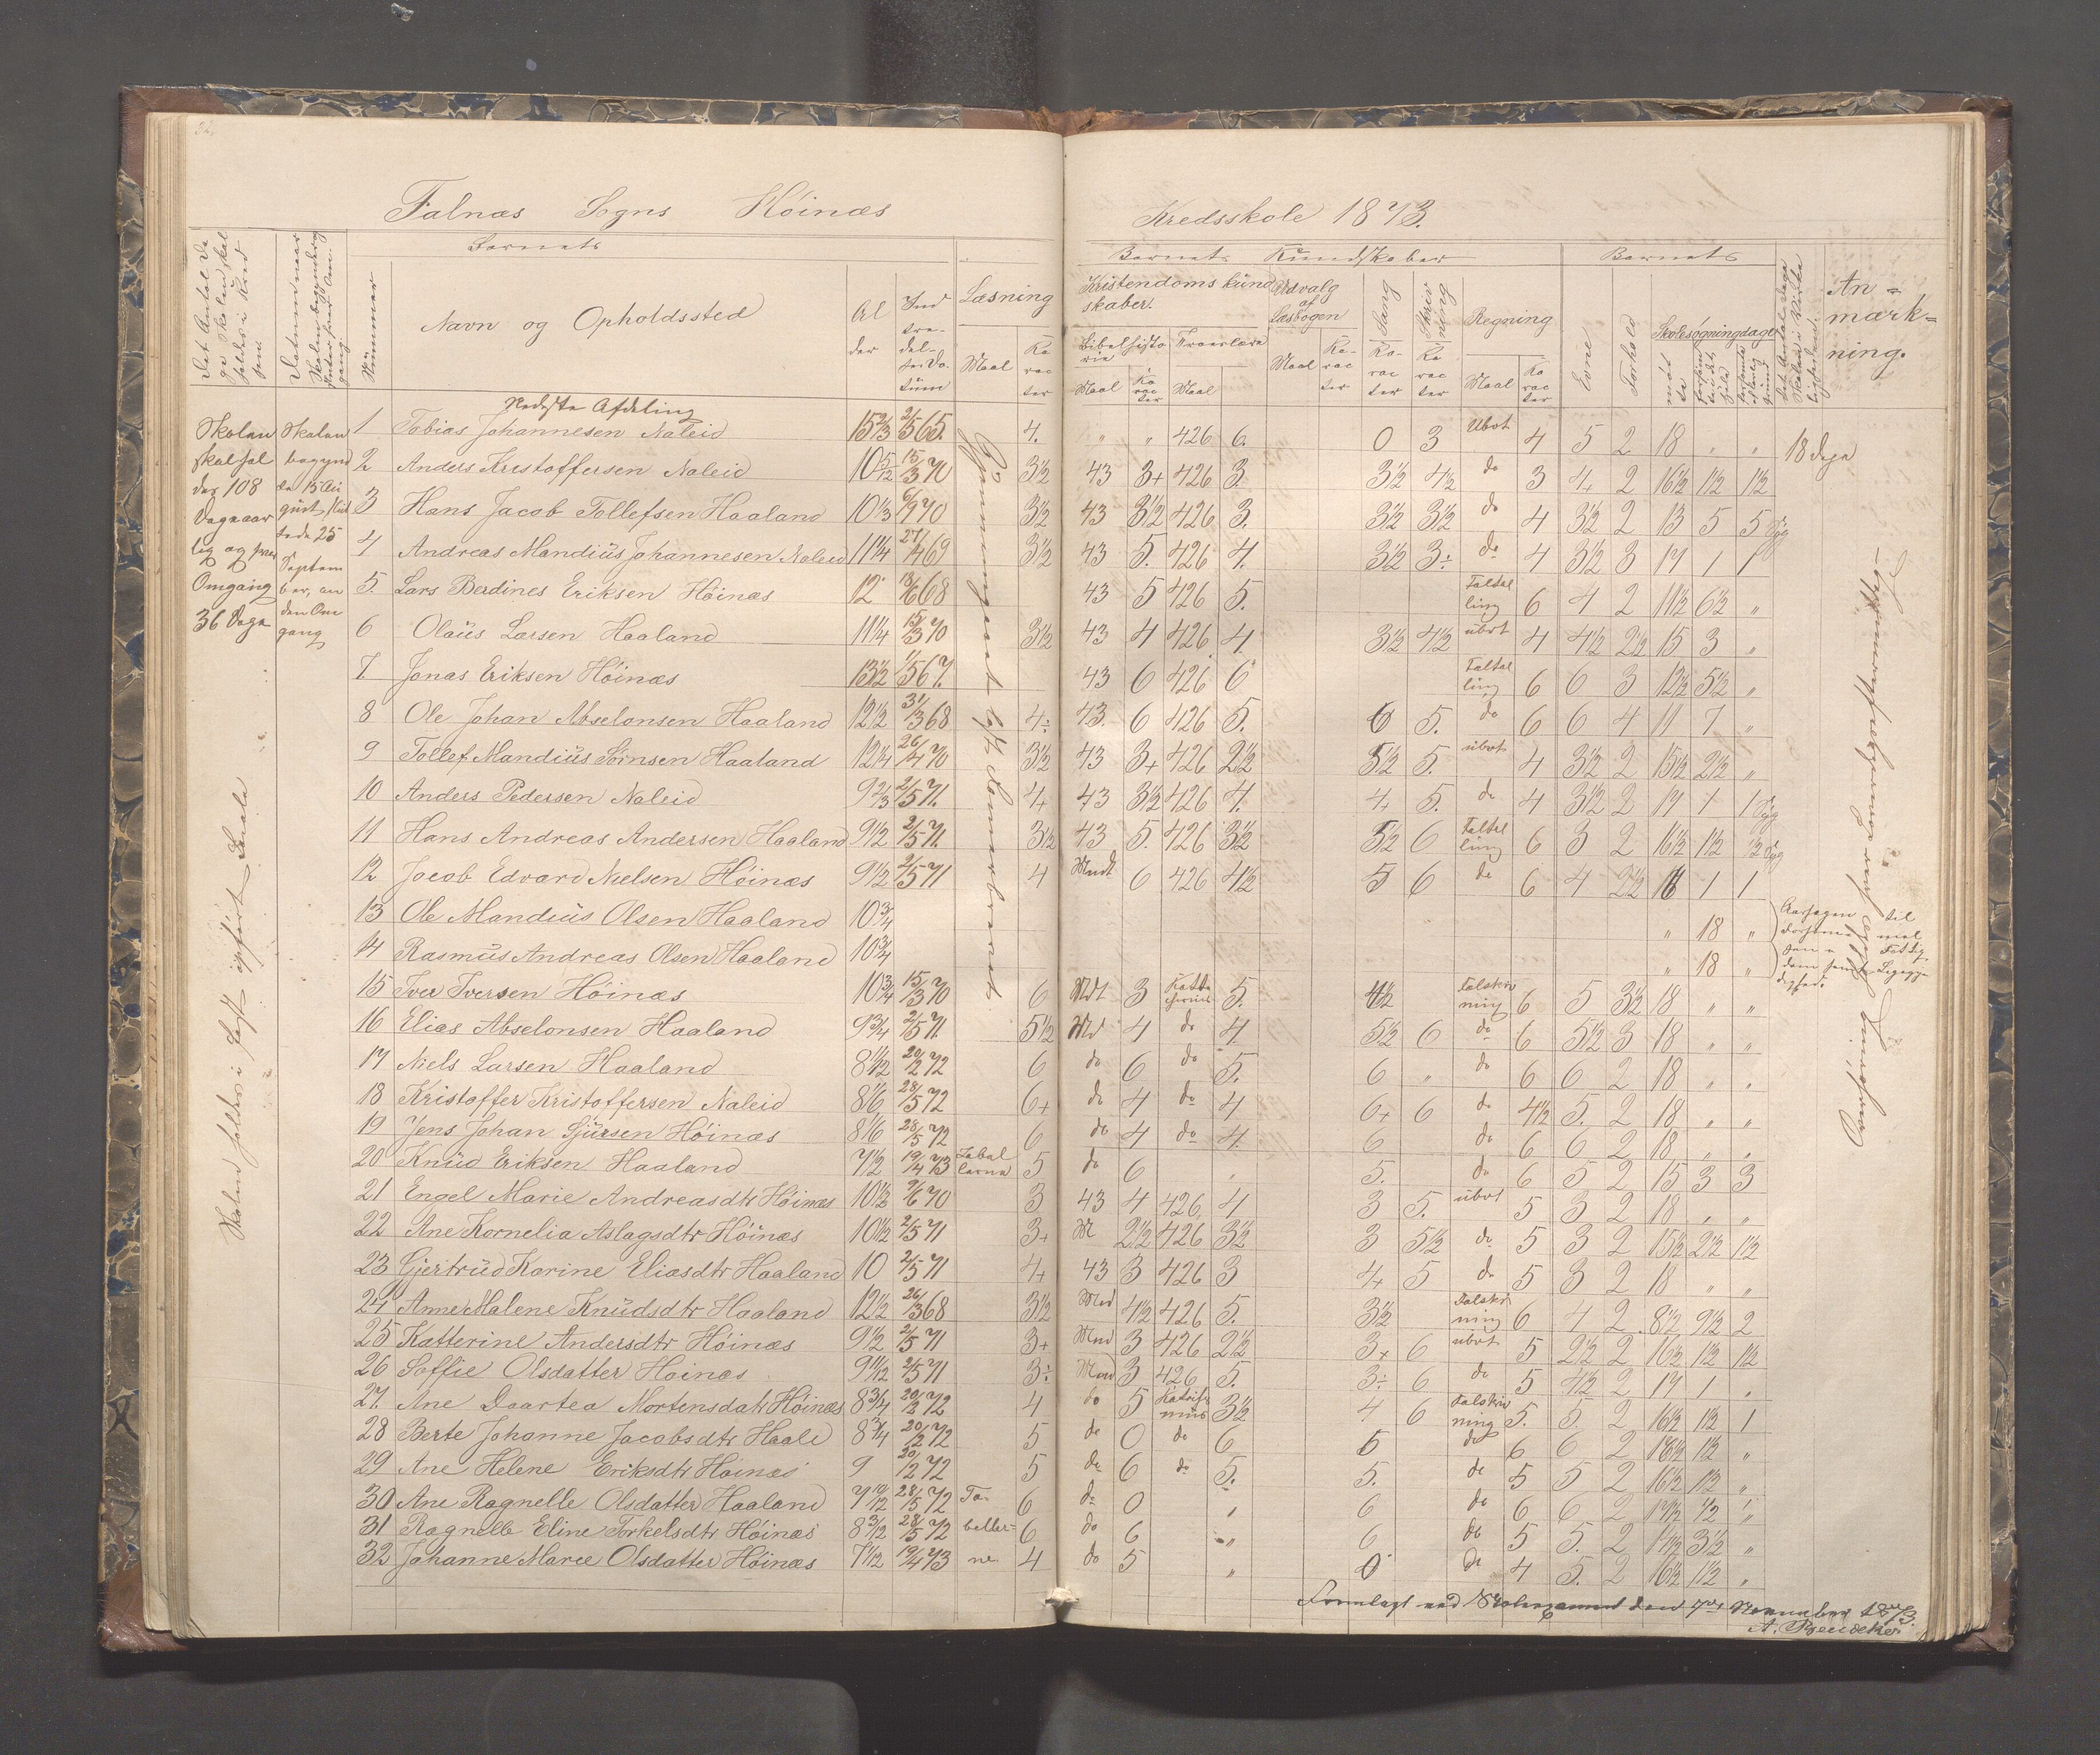 Falnæs Sogns Høinæs Kredsskole 1873.
Barnets
Barnets Kundskaber
Barnets
Nummer
Navn og Opholdssted
Al der
Ind træ- del- ses Da- tum
Læsning
Kristendoms kund skaber.
Udvalg af Læsbogen
Sang
Skriv ning
Regning
Evne
Forhold
Skolesøgningdage
An= mærk= ning.
Bibelhisto rie
Troeslære
Maal
Ka rac ter
Maal
Ka rac ter
Maal
Maal
Ka- rac ter
Ka- rac ter
Ka rac ter
Maal
Ka rac ter
mød te
Skolen skal hol des 108 Dage aar lig og hver Omgang 36 Dage
Skolen begynd te 15 Au gust, slut tede 25 Septem ber, en den Om gang
Nederste Afdeling
1 Tobias Johannesen Naleid 15 2/3 2/5 65. 4. " " 426 6. 0 3 Ubot 4 5 2 18 " " 18 dage
2 Anders Kristoffersen Naleid 10 5/12 15/3 70 3½ 43 3+ 426 3. 3½ 4½ do 3 4 2 16½ 1½ 1½
3 Hans Jacob Tollefsen Haaland 10 1/3 6/9 70 3½ 43 3½ 426 3. 3½ 3½ do 4 3½ 2 13 5 5 Syg
4 Andreas Mandius Johannesen Naleid 11¼ 27/4 69 3½ 43 5. 426 4. 3½ 3÷ do 4 3½ 3 17 1 1
5. Lars Berdines Eriksen Høinæs 12 18/6 68 43 5 426 5. Taltel ling 6 4 2 11½ 6½ "
6 Olaus Larsen Haaland 11¼ 15/3 70 3½ 43 4 426 4. 3½ 4½ ubot 4 4½ 2½ 15 3 "
7. Jonas Eriksen Høinæs 13½ 1/5 67. 43 6 426 6 Taltel ling 6 6 3 12½ 5½ "
8 Ole Johan Abselonsen Haaland 12½ 31/3 68 4÷ 43. 6 426 5. 6 5. do 6 6 4 11 7 "
9 Tollef Mandius Sørnsen Haaland 12¼ 26/4 70 3½ 43 3+ 426 2½ 5½ 5. ubot 4 3½ 2 15½ 2½ "
10 Anders Pedersen Naleid 9 2/3 2/5 71. 4+ 43 3½ 426 4. 4+ 5. do 4 3½ 2 17 1 1 Syg
11 Hans Andreas Andersen Haaland 9½ 2/5 71. 3½ 43 5. 426 3½ 5½ 6 Taltel ling 6 3 2 16½ 1½ ½ Syg
12 Jacob Edvard Nielsen Høinæs 9½ 2/5 71 4 Mndt 6 426 4½ 5 6 do 6 4 2½ 16 1 1
13 Ole Mandius Olsen Haaland 10¾ " 18 "
4 Rasmus Andreas Olsen Haaland 10¾ " 18 "
15 Iver Iversen Høinæs 10¾ 15/3 70 6 Mdt 3 5. 4½ Talskriv ning 6 5 3½ 18 " "
16 Elias Abselonsen Haaland 9¾ 2/5 71. 5½ Md 4 do 4. 5½ 6 do 6 5½ 3 18 " "
17 Niels Larsen Haaland 8 11/12 20/2 72 6 do 6 do 5. 6 " do 6 6 2 18 " "
18 Kristoffer Kristoffersen Naleid 8 1/6 28/5 72 6+ do 4 do 4 6+ 6 do 4½ 5. 2 18 " "
19 Jens Johan Sjursen Høinæs 8 1/6 28/5 72 6 do 4 do 4. 6 do 6 6 2 18 " "
20 Knud Eriksen Haaland 7½ 19/4 73 Tabel lerne 5 do 6 " 5. do 6 5 2 15 3 3
21 Engel Marie Andreasdtr Høinæs 10½ 7/6 70 3 43 4 426 4 3 5. ubot 5 3 2 18 " "
22 Ane Kornelia Aslagsdtr Høinæs 10½ 2/5 71 3+ M 2½ 426 3½ 3 5½ do 5 3 2 15½ 2½ 1½
23 Gjertrud Karine Eliasdtr Haaland 10 2/5 71 4+ 43 3 426 3 4+ 5 do 5 3 2 18 " "
24 Anne Malene Knudsdtr Haaland 12½ 26/3 68 3½ Mnd 4½ 426 5. 3½ Talskri ning 6 4 2 8½ 9½ 2
25 Katterine Andersdtr Høinæs 9½ 2/5 71 3+ Mnd 3 426 2½ 3+ 6 ubot 5 2½ 2 16½ 1½ 1½
26 Soffie Olsdatter Høinæs 9 11/12 2/5 71 3÷ Mnd 3 426 5. 3÷ 6 do 5 4½ 2 17 1 "
27. Ane Daartea Mortensdatr Høinæs 8¾ 20/2 72 4 do 5 3½ 4 6 Talskriv ning 5. 5. 2 16½ 1½ 1
28 Berte Johanne Jacobsdtr Haale 8¾ 20/2 72 5 do 0 do 6 5 do 6 6 2 16½ 1½ "
29 Ane Helene Eriksdtr Høinæs 9 20/2 72 5 do 6 do 5. 5. do 5 5 2 16½ 1½ "
30 Ane Ragnelle Olsdatter Haaland 7 10/12 28/5 72 Ta- 6 do 0 " 6 do 6 6 2 17½ ½ "
31 Ragnelle Eline Torkelsdtr Høinæs 8 3/12 28/5 72 beller= 6 do 6 " 6 do 5 5. 2 14½ 3½ "
32 Johanne Marie Olsdatter Høinæs 7 1/12 19/4 73 ne. 4 do 5 " 6 do 4 5. 2 16½ 1½ "
Skolen holdes i
Gjennemgaaet
Aarsagen til
Forsømmel
sen er Fattig
dom
Fremlagt ved Skoleexamen den 7de November 1873.